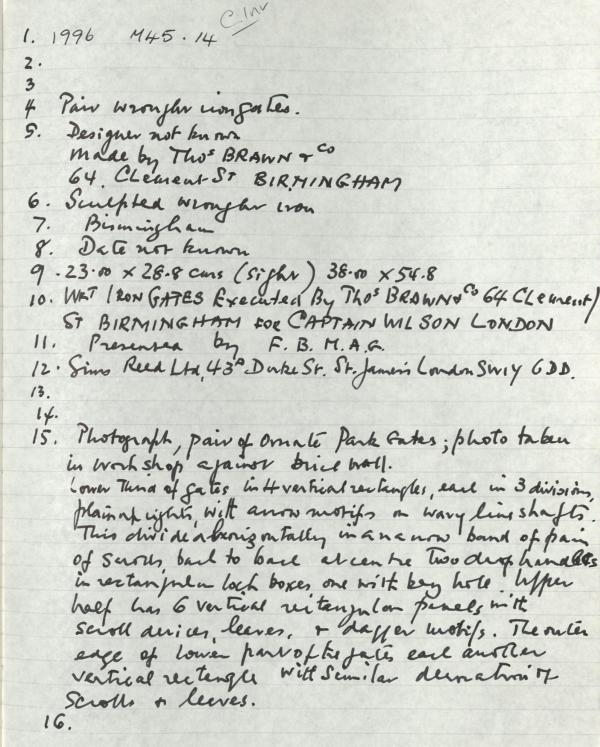 C. Inv
1. 1996 M45.14
2.
3
4 Pair wrought iron gates.
5. Designer not known
Made by Thos BRAWN & Co
64. Clement St BIRMINGHAM
6. Sculpted wrought iron
7. Birmingham
8. Date not known
9. 23.00 x 28.8 cms (sight) 38.00 x 54.8
10. WRT IRON GATES Executed By Thos BRAWN & Co 64 Clement/
ST BIRMINGHAM FOR CAPTAIN WILSON LONDON
11. Presented by F. B. M. A. G.
12. Sims Reed Ltd, 43A Duke St. St. James's London SW1Y 6DD.
13.
14.
15. Photograph, pair of Ornate Park Gates; photo taken
in workshop against brick wall.
Lower Third of gates in 4 vertical rectangles, each in 3 divisions,
plain uprights, with arrow motifs on wavy line shafts.
This divided horizontally in a narrow band of pair
of scrolls, back to back at centre two drop handles
in rectangular lock boxes one with key hole. Upper
half has 6 vertical rectangular panels with
scroll devices, leaves, & dagger motifs. The outer
edge of lower part of the gates each another
vertical rectangle with similar decoration of
Scrolls & leaves.
16.